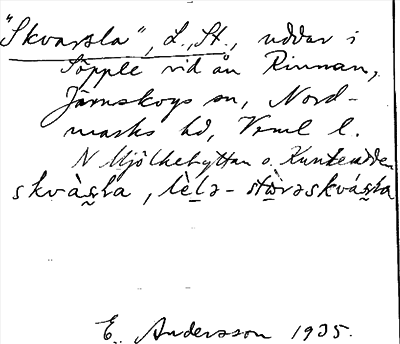 "Skvarsla", L., St., uddar i
Töpple vid ån Rinnan,
Järnskogs sn, Nord-
marks hd, Verml l.
N Mjölkehyttan o. Kunterudden
skvàs̰la, lèlə- stòrəskvás̰la
E. Andersson 1935.